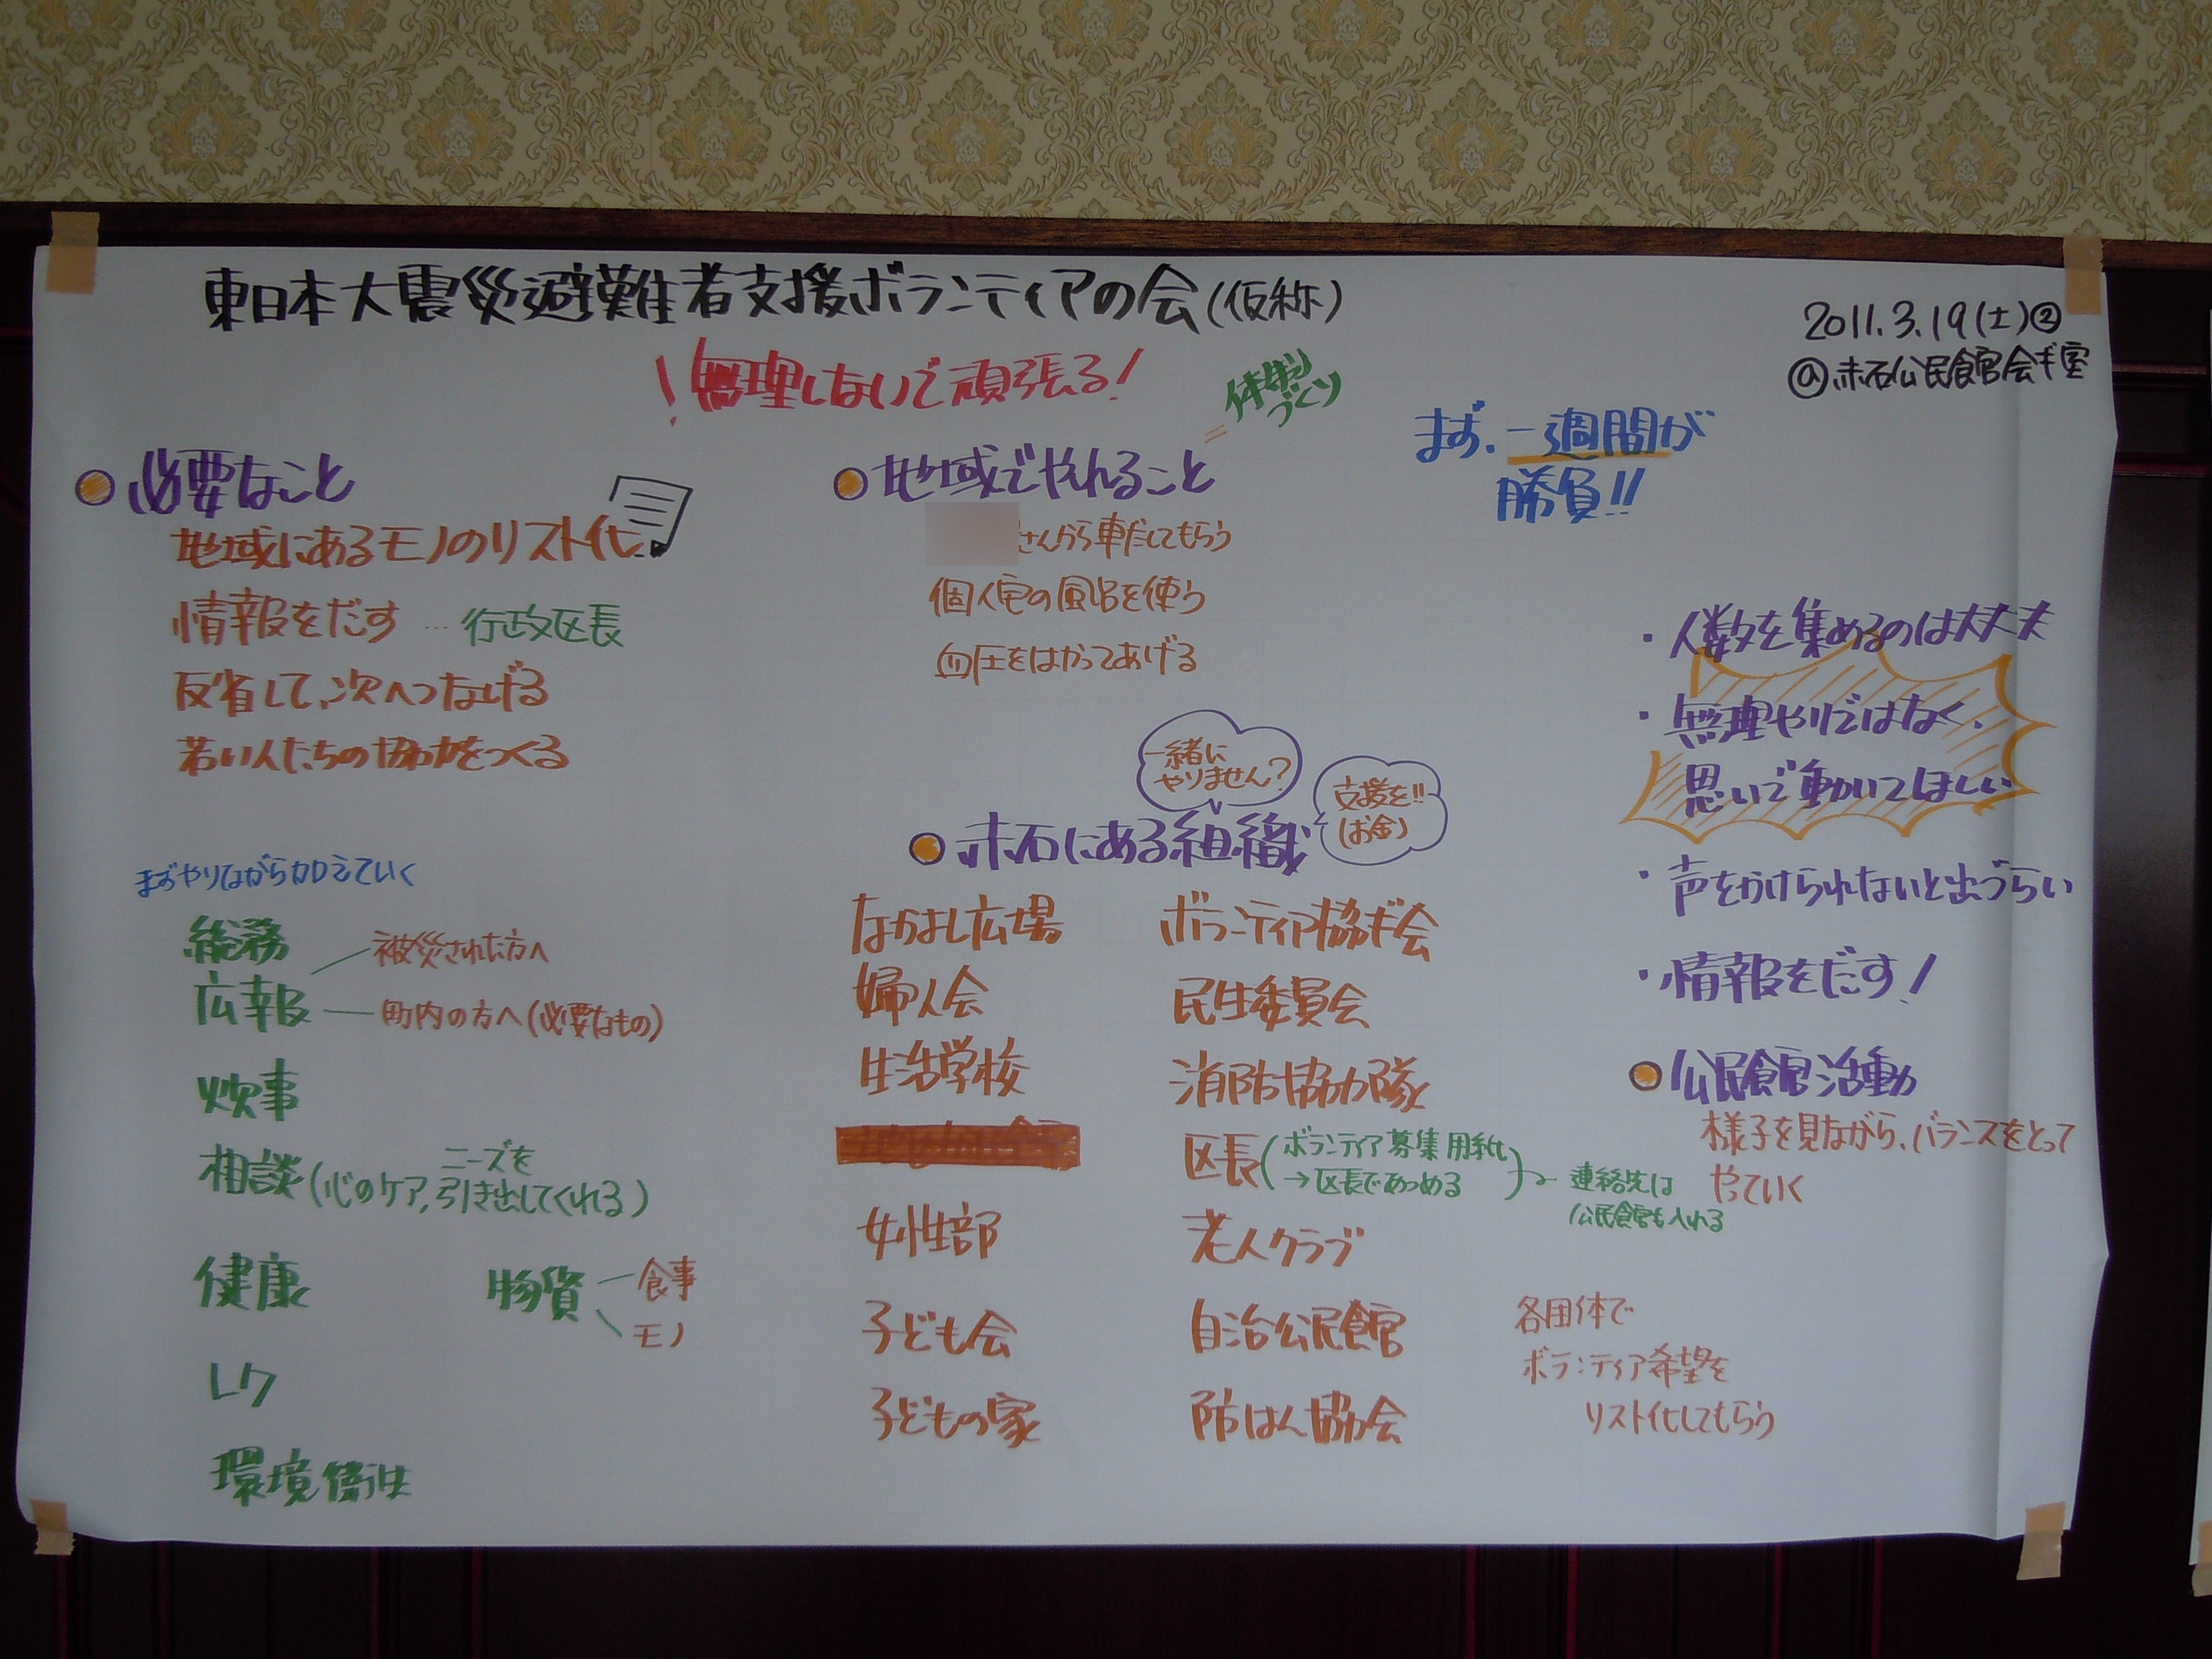 東日本大震災避難者支援ボランティアの会(仮称)
2011.3.19(土)②
@赤石公民館会ギ室
!無理しないで頑張る!
体制づくり
まず、一週間が
勝負!!
必要なこと
地域にあるモノのリスト化
情報をだす … 行政区長
反省して、次へつなげる
若い人たちの協力をつくる
地域でやれること
さんから車だしてもらう
個人宅の風呂を使う
血圧をはかってあげる
・人数を集めるのは大丈夫
・無理やりではなく、
思いで動いてほしい
・声をかけられないと出づらい
・情報をだす!
まずやりながら加えていく
総務
広報
被災された方へ
町内の方へ(必要なもの)
炊事
相談(心のケア,ニーズを引き出してくれる)
健康
物資
食事
モノ
レク
環境衛生
一緒に
やりません?
支援を!!
(お金)
赤石にある組織
なかよし広場
婦人会
生活学校
女性部
子ども会
子どもの家
ボランティア協ギ会
民生委員会
消防協力隊
区長(ボランティア募集用紙
→区長であつめる)
連絡先は
公民館も入れる
老人クラブ
自治公民館
防はん協力会
公民館活動
様子を見ながら、バランスをとって
やっていく
各団体で
ボランティア希望を
リスト化してもらう